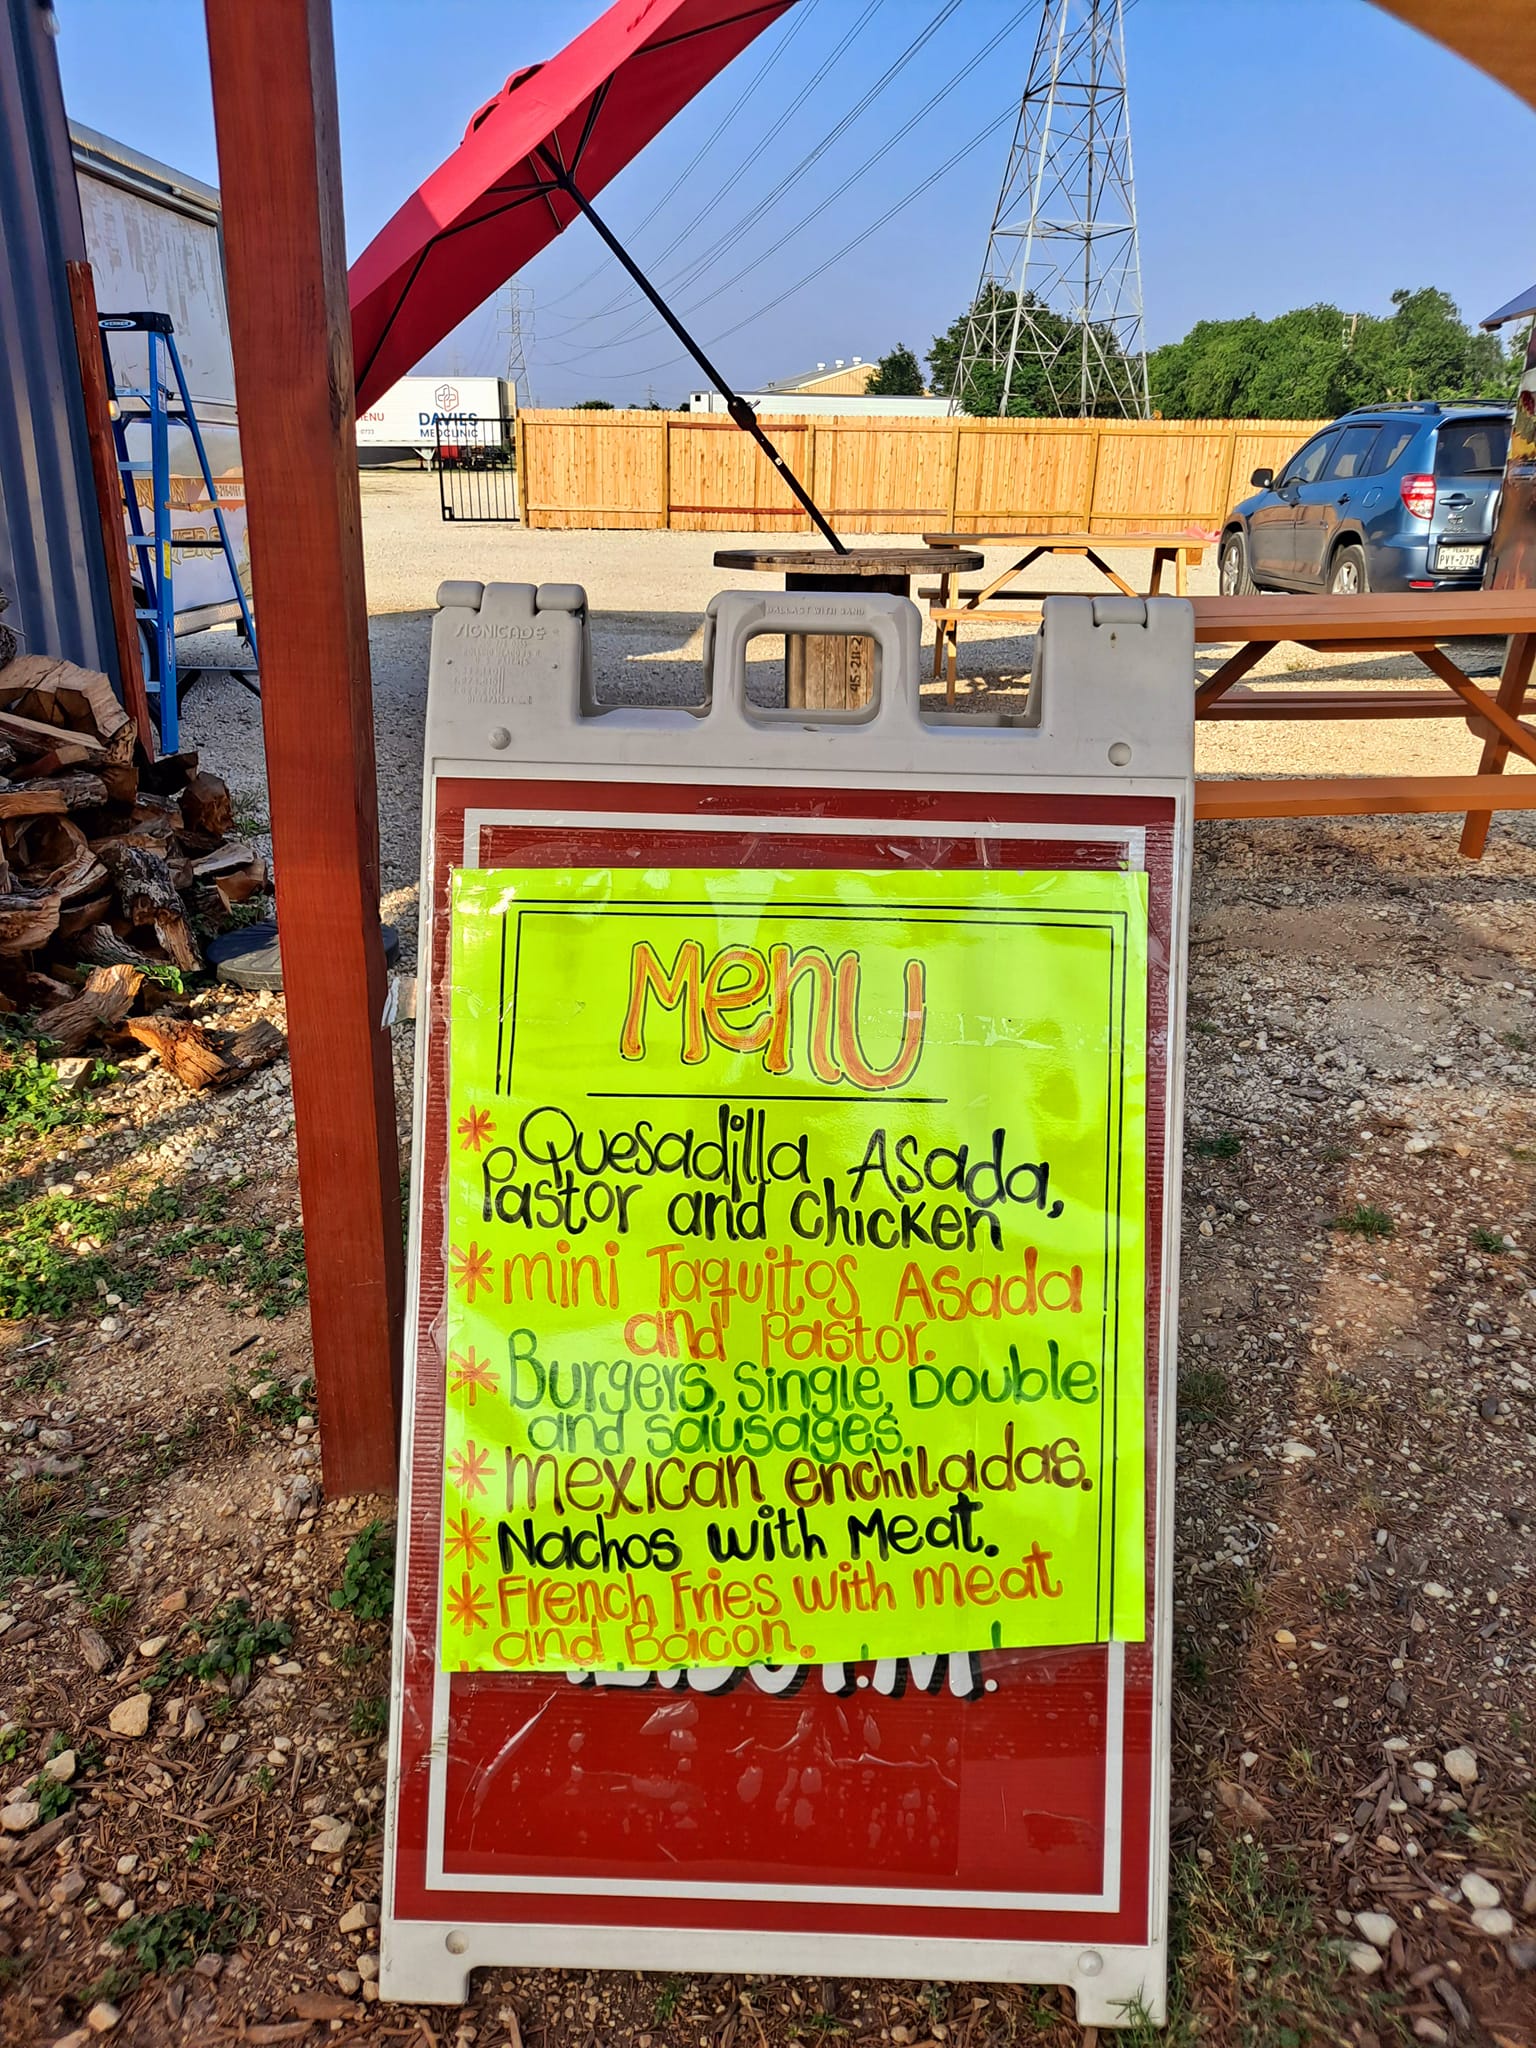 WERNER
MENU
DAVIES
MEDCLINIC
TEXAS
PVY-2754
BALLAST WITH SAND
SIGNICADE
45-28-2
Menu
* Quesadilla Asada,
Pastor and Chicken
* mini Taquitos Asada
and Pastor.
* Burgers, Single, Double
and sausages.
* Mexican enchiladas.
* Nachos with Meat.
* French Fries with meat
and Bacon.
P.M.